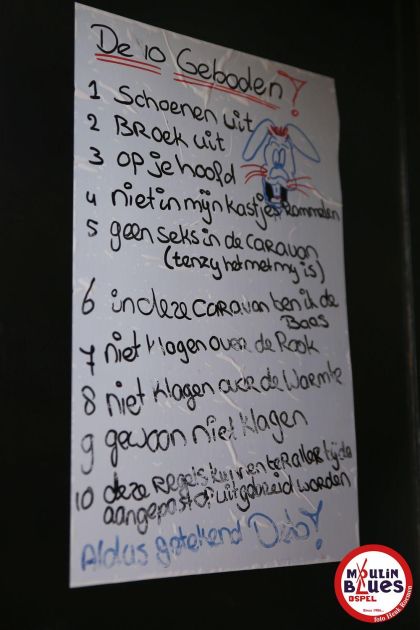 De 10 Geboden!
1 Schoenen uit
2 BROEK uit
3 op je hoofd
4 niet in mijn kastjes Rommelen
5 geen seks in de CARAVAN
(tenzy het met my is)
6 in deze CARAVAN ben ik de
Baas
7 niet klagen over de Rook
8 niet klagen over de Warmte
9 gewoon niet klagen
10 deze Regels kunnen te Aller tijde
aangepast of uitgebreid worden
Aldus getekend Deb!
MOULIN
BLUES
OSPEL
Since 1986...
foto Henk Roemen